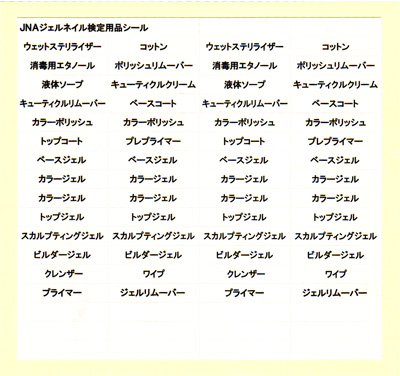 JNAジェルネイル検定用品シール
ウェットステリライザー コットン ウェットステリライザー コットン
消毒用エタノール ポリッシュリムーバー 消毒用エタノール ポリッシュリムーバー
液体ソープ キューティクルクリーム 液体ソープ キューティクルクリーム
キューティクルリムーバー ベースコート キューティクルリムーバー ベースコート
カラーポリッシュ カラーポリッシュ カラーポリッシュ カラーポリッシュ
トップコート プレプライマー トップコート プレプライマー
ベースジェル ベースジェル ベースジェル ベースジェル
カラージェル カラージェル カラージェル カラージェル
カラージェル カラージェル カラージェル カラージェル
トップジェル トップジェル トップジェル トップジェル
スカルプティングジェル スカルプティングジェル スカルプティングジェル スカルプティングジェル
ビルダージェル ビルダージェル ビルダージェル ビルダージェル
クレンザー ワイプ クレンザー ワイプ
プライマー ジェルリムーバー プライマー ジェルリムーバー